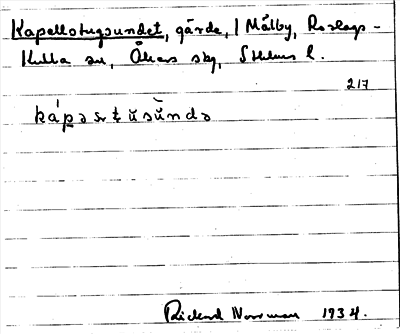 Kapellstugsundet, gärde, 1 Målby, Roslags-
Kulla sn, Åkers skg, Sthlms l.
217
Richard Norrman 1934.